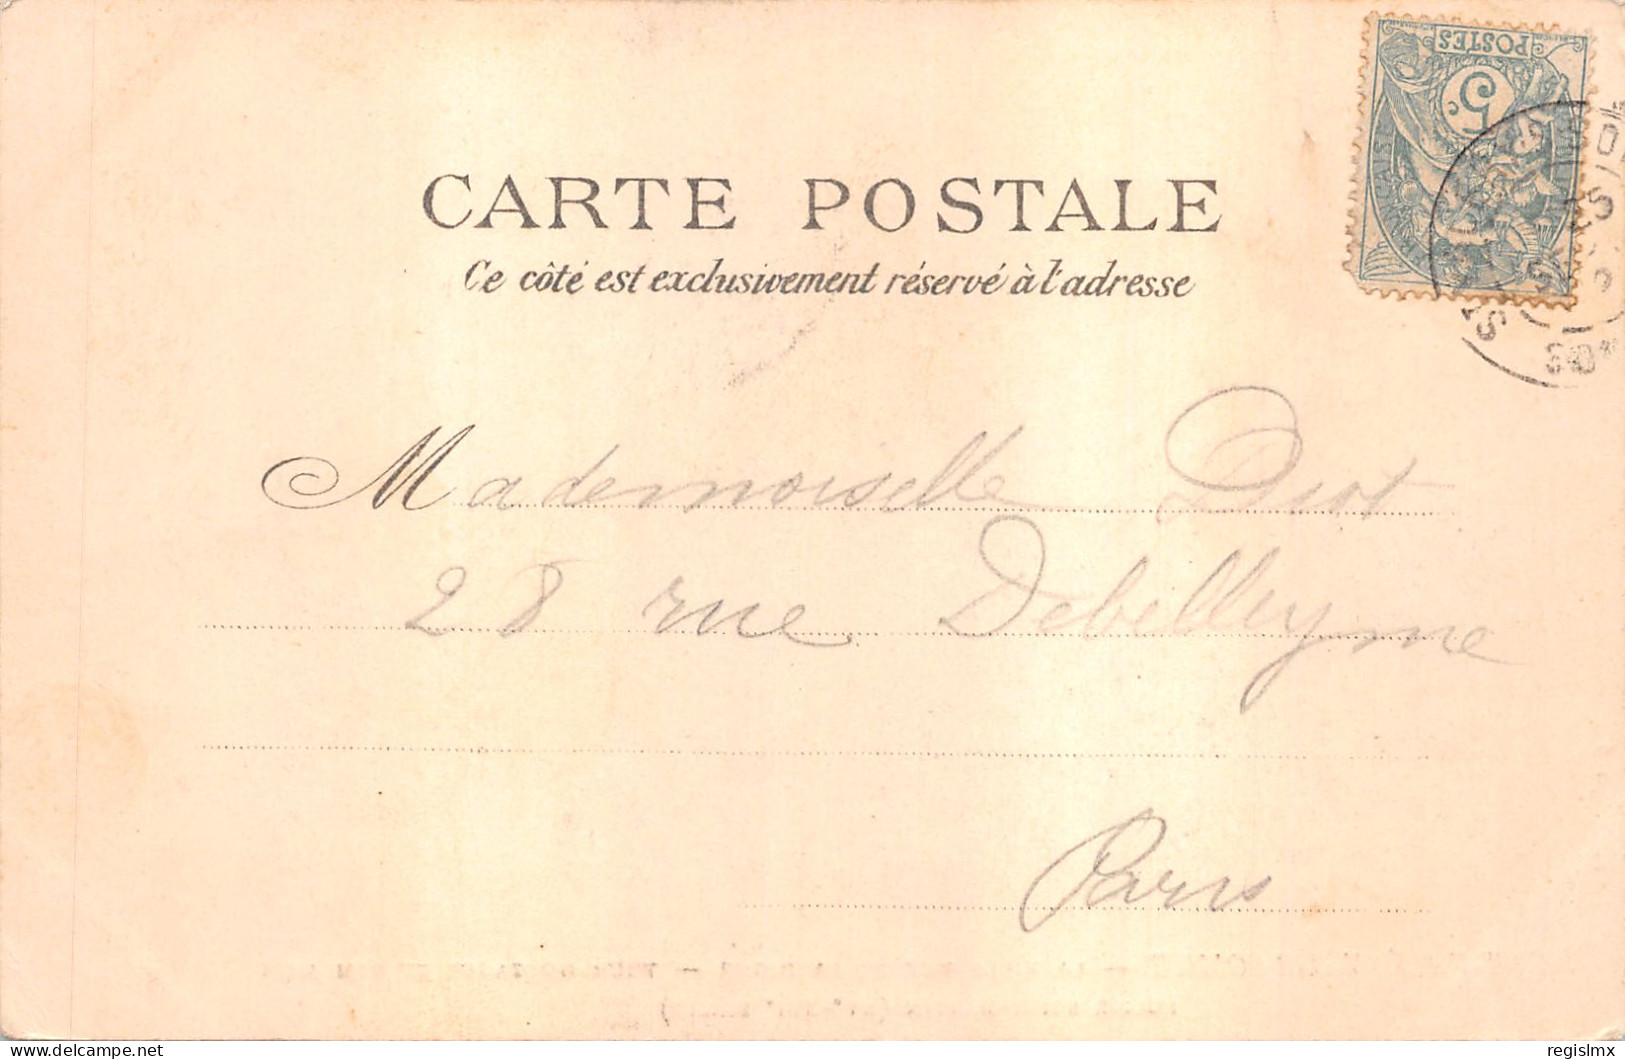 POSTES
5c
CARTE POSTALE
Ce côté est exclusivement réservé à l'adresse
Mademoiselle Diot
28 rue Debelleyme
Paris
delcampe.net
regislmx